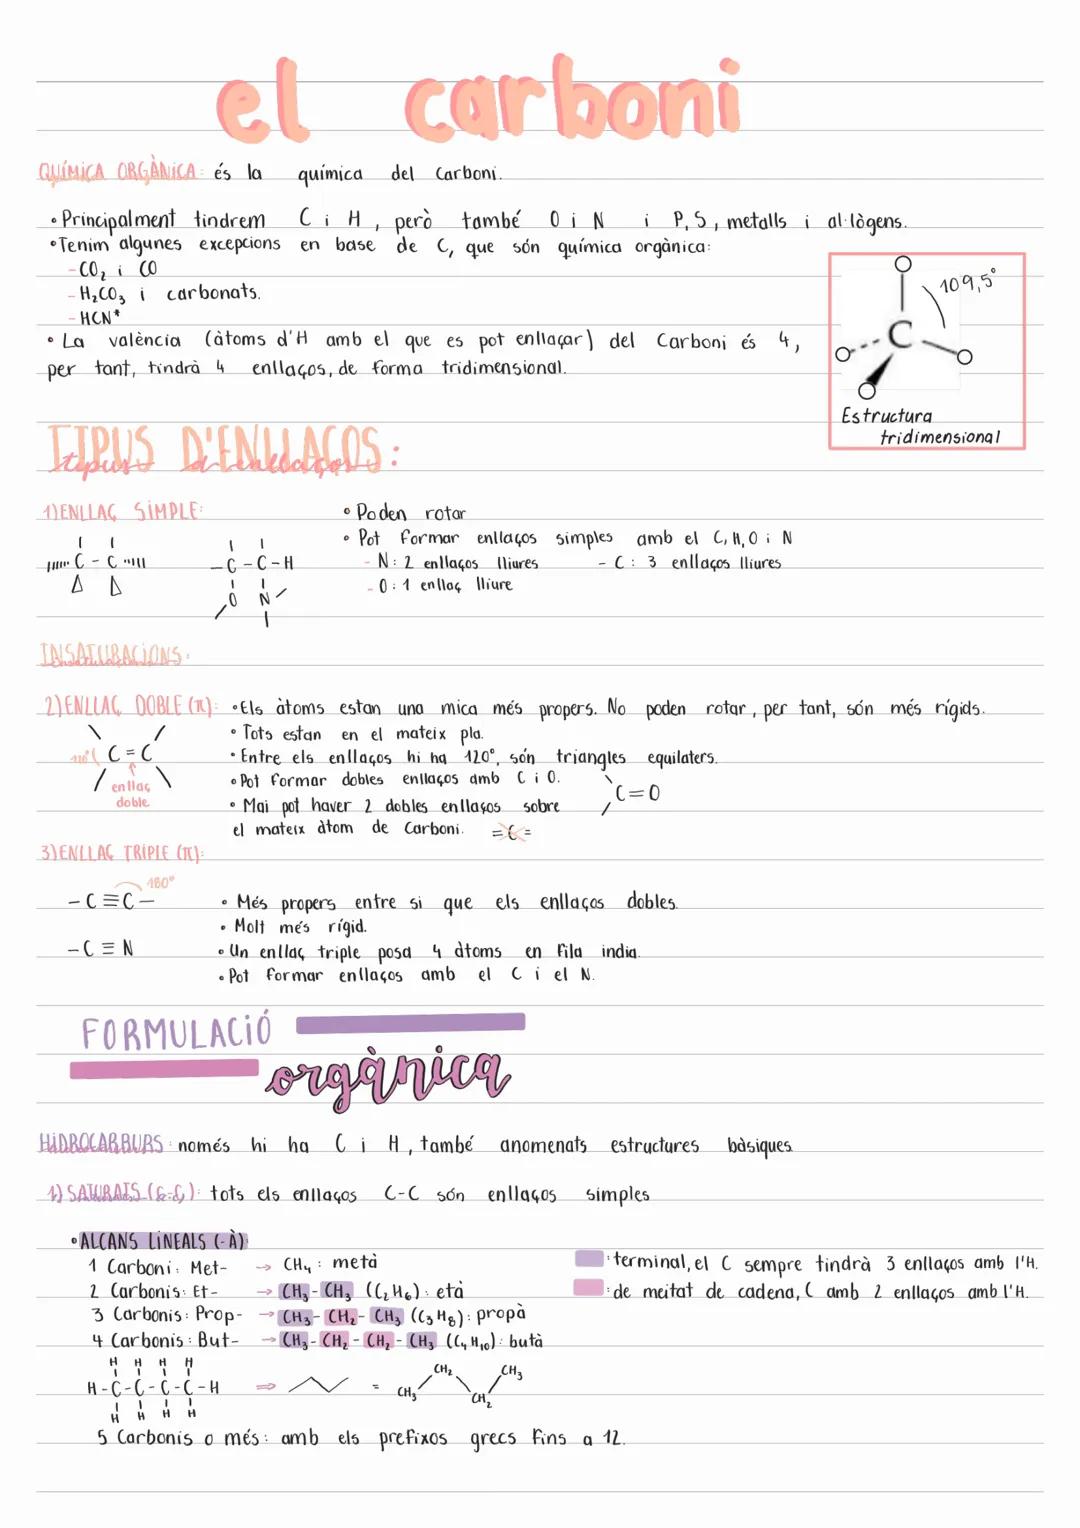 el carboni
QUÍMICA ORGÀNICA: és la química del Carboni.
•Principalment tindrem C i H, però també O i N i P, S, metalls i al·lògens.
•Tenim algunes excepcions en base de C, que són química orgànica:
-CO₂ i CO
-H₂CO₃ i carbonats.
-HCN*
•La valència (àtoms d'H amb el que es pot enllaçar) del Carboni és 4,
per tant, tindrà 4 enllaços, de forma tridimensional.
109,5°
C
Estructura
tridimensional
TIPUS D'ENLLAÇOS:
tipus d'enllaços
1)ENLLAÇ SIMPLE:
•Poden rotar
•Pot formar enllaços simples amb el C, H, O i N
-N: 2 enllaços lliures -C: 3 enllaços lliures
-O: 1 enllaç lliure
C - C
-C-C-H
O N
INSATURACIONS:
2)ENLLAÇ DOBLE (π): •Els àtoms estan una mica més propers. No poden rotar, per tant, són més rígids.
•Tots estan en el mateix pla.
•Entre els enllaços hi ha 120°, són triangles equilaters.
•Pot formar dobles enllaços amb C i O.
•Mai pot haver 2 dobles enllaços sobre
el mateix àtom de Carboni. =C=
120° C=C
enllaç
doble
C=O
3)ENLLAÇ TRIPLE (π):
180°
-C≡C-
-C≡N
•Més propers entre si que els enllaços dobles.
•Molt més rígid.
•Un enllaç triple posa 4 àtoms en fila india.
•Pot formar enllaços amb el C i el N.
FORMULACIÓ
orgànica
HIDROCARBURS: només hi ha C i H, també anomenats estructures bàsiques.
1) SATURATS (C-C): tots els enllaços C-C són enllaços simples
•ALCANS LINEALS (-À):
1 Carboni: Met- → CH₄: metà
2 Carbonis: Et- → CH₃-CH₃ (C₂H₆): età
3 Carbonis: Prop- → CH₃-CH₂-CH₃ (C₃H₈): propà
4 Carbonis: But- → CH₃-CH₂-CH₂-CH₃ (C₄H₁₀): butà
:terminal, el C sempre tindrà 3 enllaços amb l'H.
:de meitat de cadena, C amb 2 enllaços amb l'H.
H H H H
H-C-C-C-C-H ⇒ =
H H H H
CH₃ CH₂ CH₂ CH₃
5 Carbonis o més: amb els prefixos grecs fins a 12.